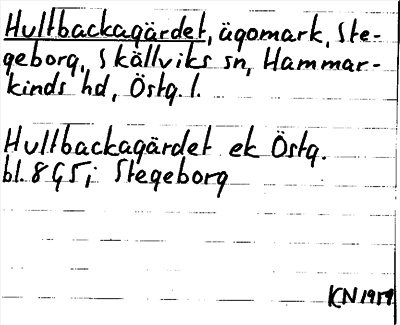 Hultbackagärdet, ägomark, Ste-
geborg, Skällviks sn, Hammar-
kinds hd, Östg. l.
Hultbackagärdet ek Östg.
bl. 8 G5; Stegeborg
KN